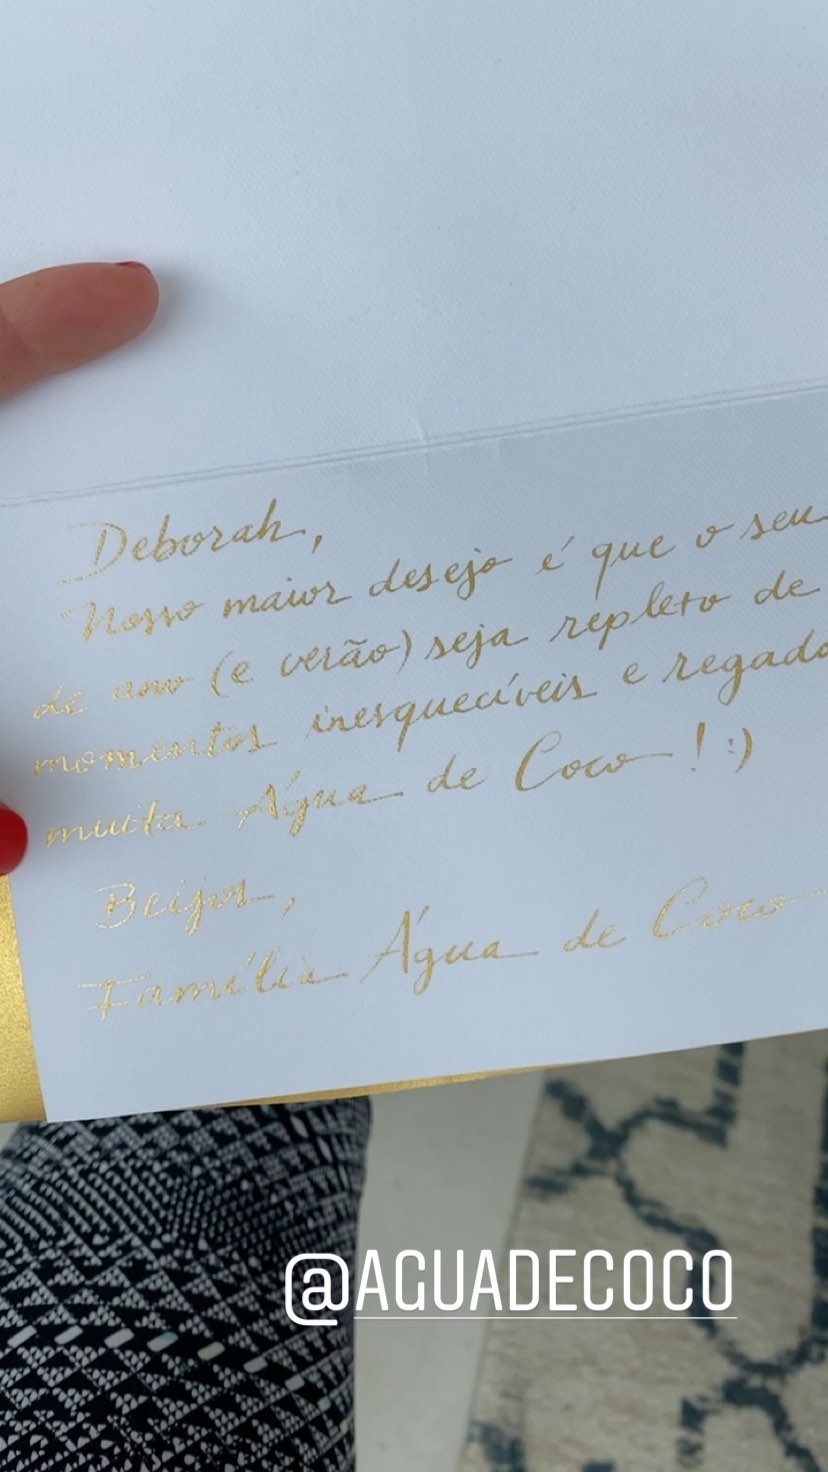 Deborah,
Nosso maior desejo é que o seu
de ano (e verão) seja repleto de
momentos inesquecíveis e regado
muita Água de Coco! :)
Beijos,
Família Água de Coco
@AGUADECOCO